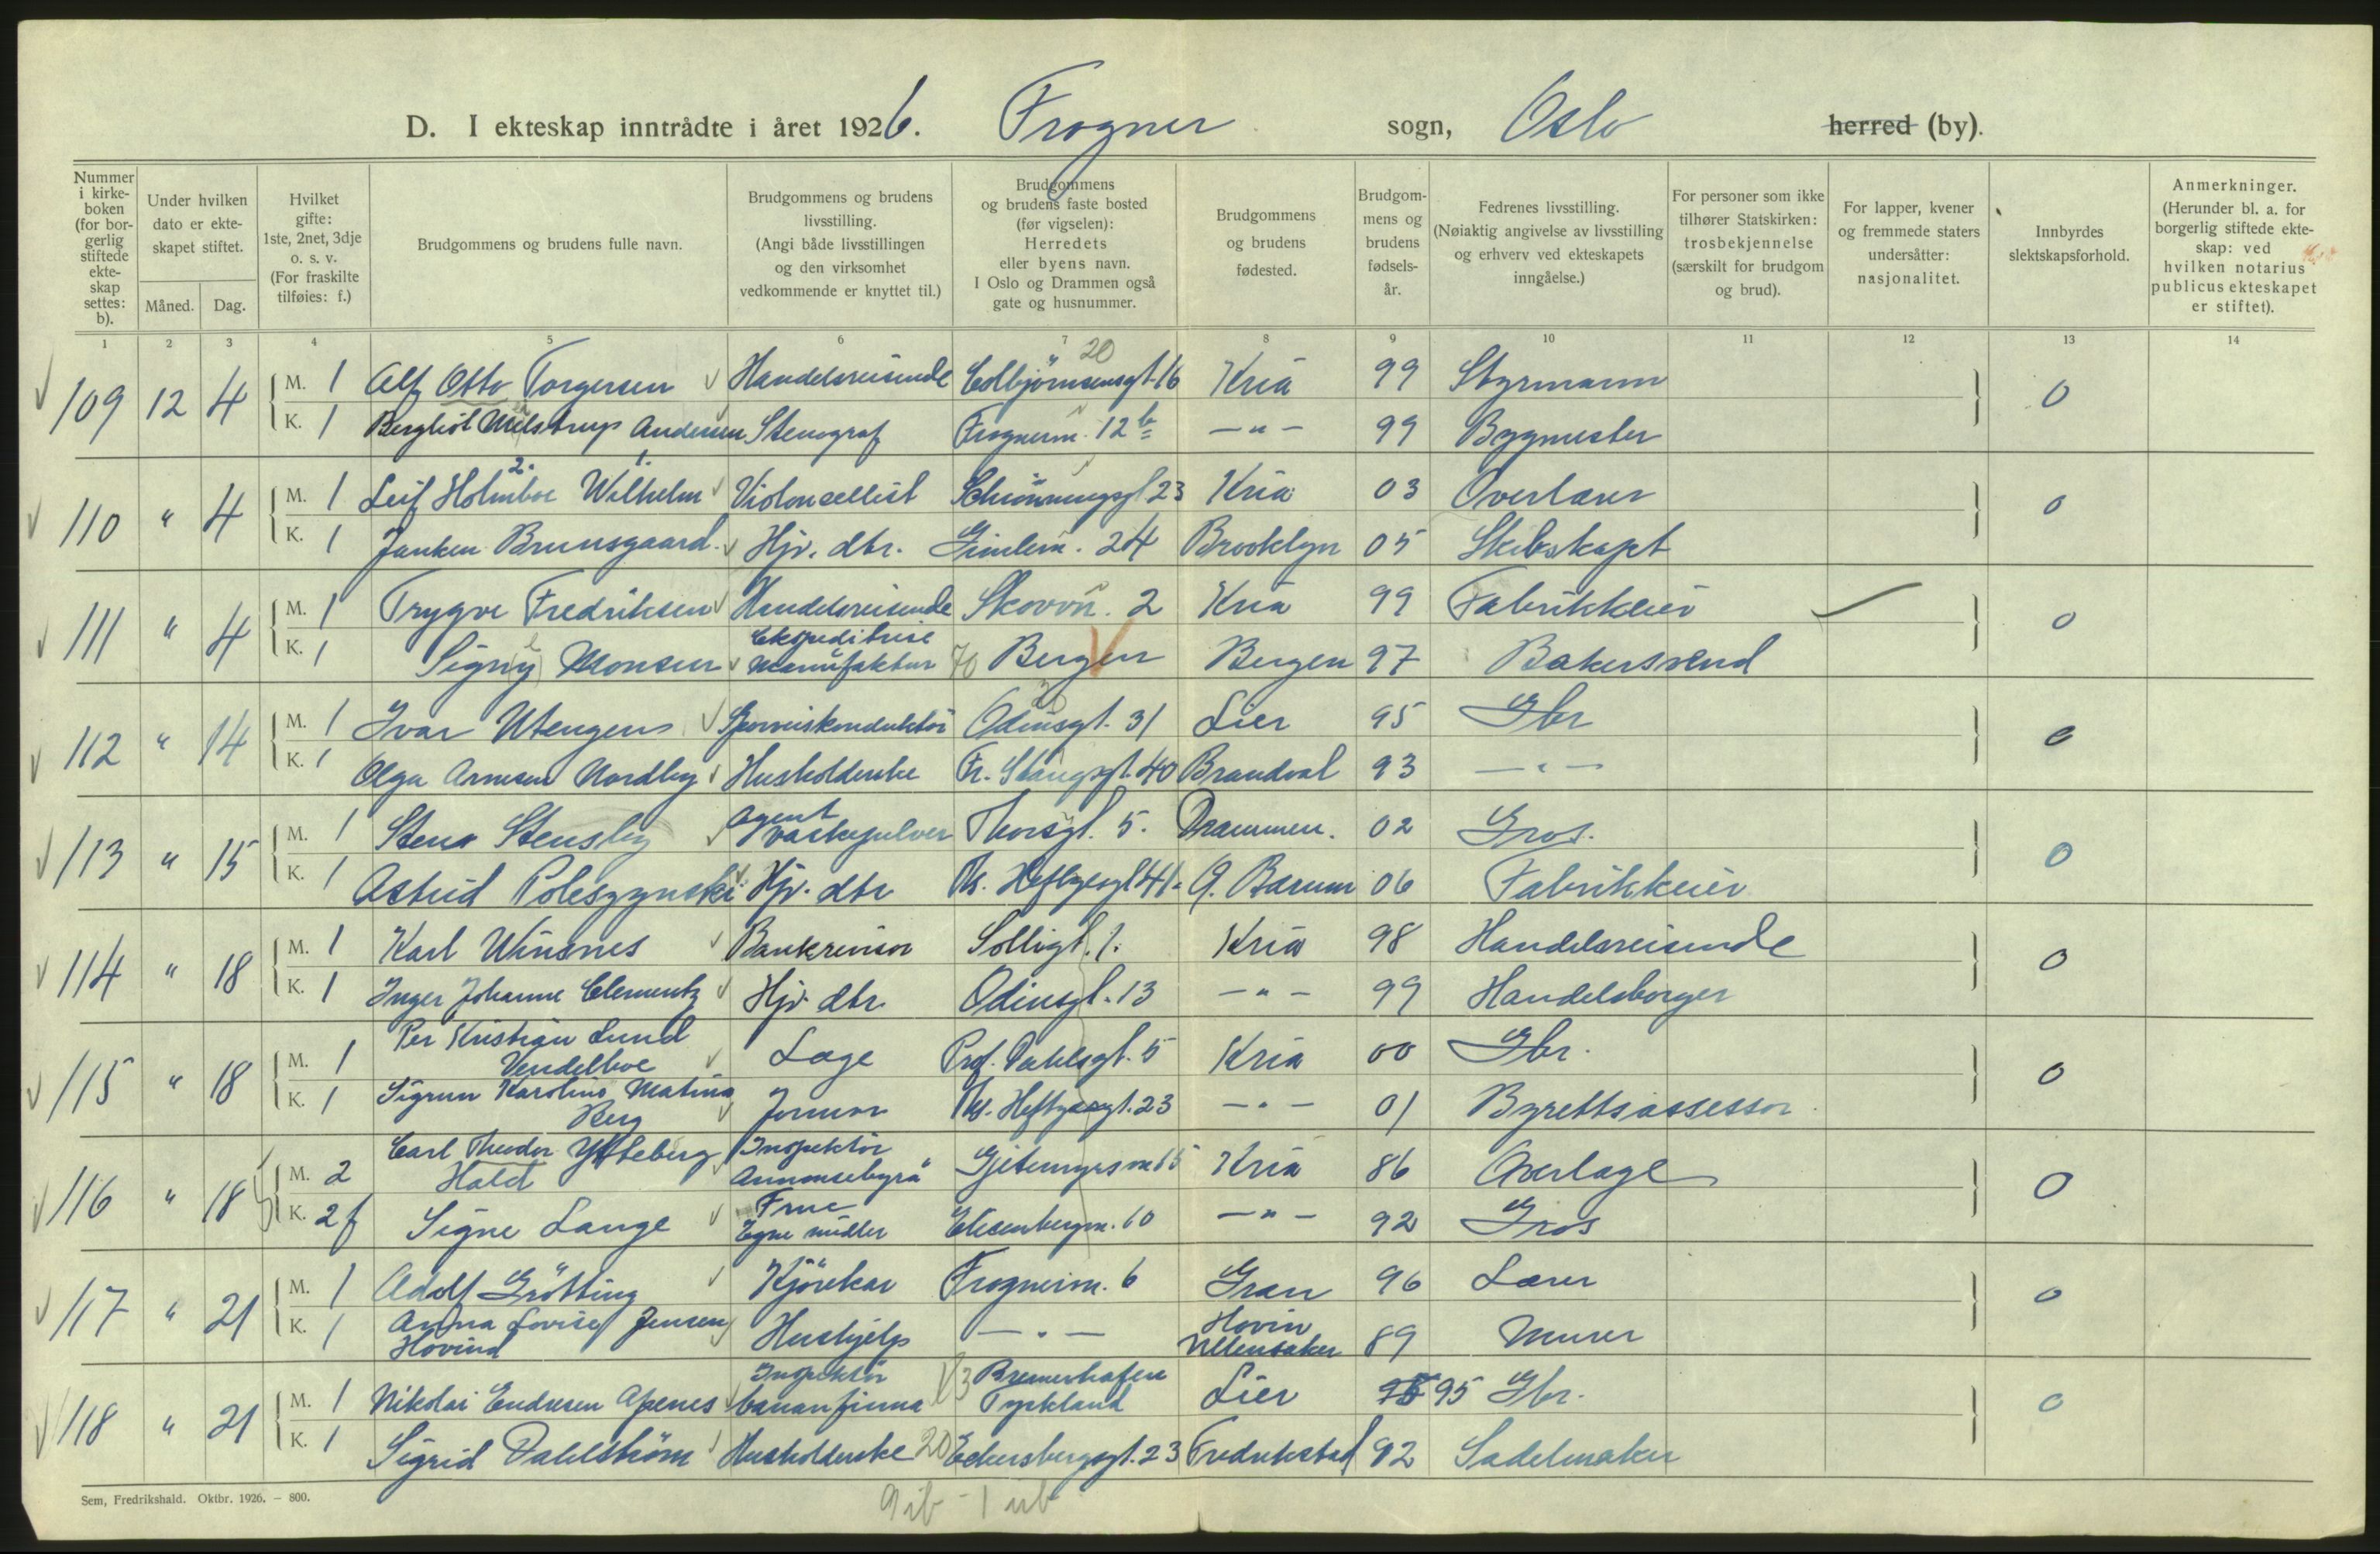 D. I ekteskap inntrådte i året 1926. Frogner sogn, Oslo herred (by).
Nummer i kirke-boken (for bor-gerlig stiftede ekte-skap settes: b).
Under hvilken dato er ekte-skapet stiftet.
Måned. Dag.
Hvilket gifte: 1ste, 2net, 3dje o. s. v. (For fraskilte tilføies: f.)
Brudgommens og brudens fulle navn.
Brudgommens og brudens livsstilling. (Angi både livsstillingen og den virksomhet vedkommende er knyttet til.)
Brudgommens og brudens faste bosted (før vigselen): Herredets eller byens navn. I Oslo og Drammen også gate og husnummer.
Brudgommens og brudens fødested.
Brudgom-mens og brudens fødsels-år.
Fedrenes livsstilling. (Nøiaktig angivelse av livsstilling og erhverv ved ekteskapets inngåelse.)
For personer som ikke tilhører Statskirken: trosbekjennelse (særskilt for brudgom og brud).
For lapper, kvener og fremmede staters undersåtter: nasjonalitet.
Innbyrdes slektskapsforhold.
Anmerkninger. (Herunder bl. a. for borgerlig stiftede ekte-skap: ved hvilken notarius publicus ekteskapet er stiftet).
1 2 3 4 5 6 7 8 9 10 11 12 13 14
20
109 12 4 M. 1 Alf Otto Torgersen Handelsreisende Colbjörnsensgt. 16 Kria 99 Styrmann 0
K. 1 Bergliot Andersen Stenograf Frognerv. 12 b - " - 99 Bygmester
2. 1.
110 " 4 M. 1 Leif Holmboe Wilhelm Violoncellist Schiönningsgt 23 Kria 03 Overlærer 0
K. 1 Janken Brunsgaard Hjv. dtr. Gimlev. 24 Brooklyn 05 Skibskapt
111 " 4 M. 1 Trygve Fredriksen Handelsreisende Skovv. 2 Kria 99 Fabrikkeier 0
K. 1 Signy Monsen Ekspeditrise manufaktur 70 Bergen Bergen 97 Bakersvend
112 " 14 M. 1 Ivar Utengen Sporveiskonduktör Odinsgt. 31 Lier 95 Gbr 0
K. 1 Olga Arnesen Nordby Husholderske Fr. Stangsgt. 40 Brandval 93 - " -
113 " 15 M. 1 Stensby Agent vaskepulver Thorsgt. 5. Drammen. 02 Gros. 0
K. 1 Astrid Poleszynski Hjv. dtr Th. Heftyesgt 41. Ø. Bærum 06 Fabrikkeier
114 " 18 M. 1 Karl Winsnes Bankrevisor Solligt. 1. Kria 98 Handelsreisende 0
K. 1 Inger Johanne Clementz Hjv. dtr. Odinsgt. 13 - " - 99 Handelsborger
115 " 18 M. 1 Per Kristian Lund Vendelboe Læge Prof. Dahlsgt. 5 Kria 00 Gbr. 0
K. 1 Sigrun Karoline Berg Th. Heftyesgt. 23 - " - 01 Byrettsassessor
116 " 18 M. 2 Carl Theodor Ytteberg Hald Inspektör Annonsebyrå Gjetemyrsv. 15 Kria 86 Overlæge 0
K. 2 f Signe Lange Frue Egne midler Elisenbergv. 10 - " - 92 Gros
117 " 21 M. 1 Adolf Grötting Kjörekar Frognerv. 6 Gran 96 Lærer 0
K. 1 Anna Lovise Jensen Hovind Hushjelp - " - Hovin Ullensaker 89 Murer
118 " 21 M. 1 Nikolai Endresen Apenes Inspektör bananfirma Bremerhafen Tyskland Lier 95 Gbr. 0
K. 1 Sigrid Dahlström Husholderske 20 Eckersbergsgt. 23 Fredrikstad 92 Sadelmaker
Sem, Fredrikshald. Oktbr. 1926. – 800.
9 ib - 1 ub